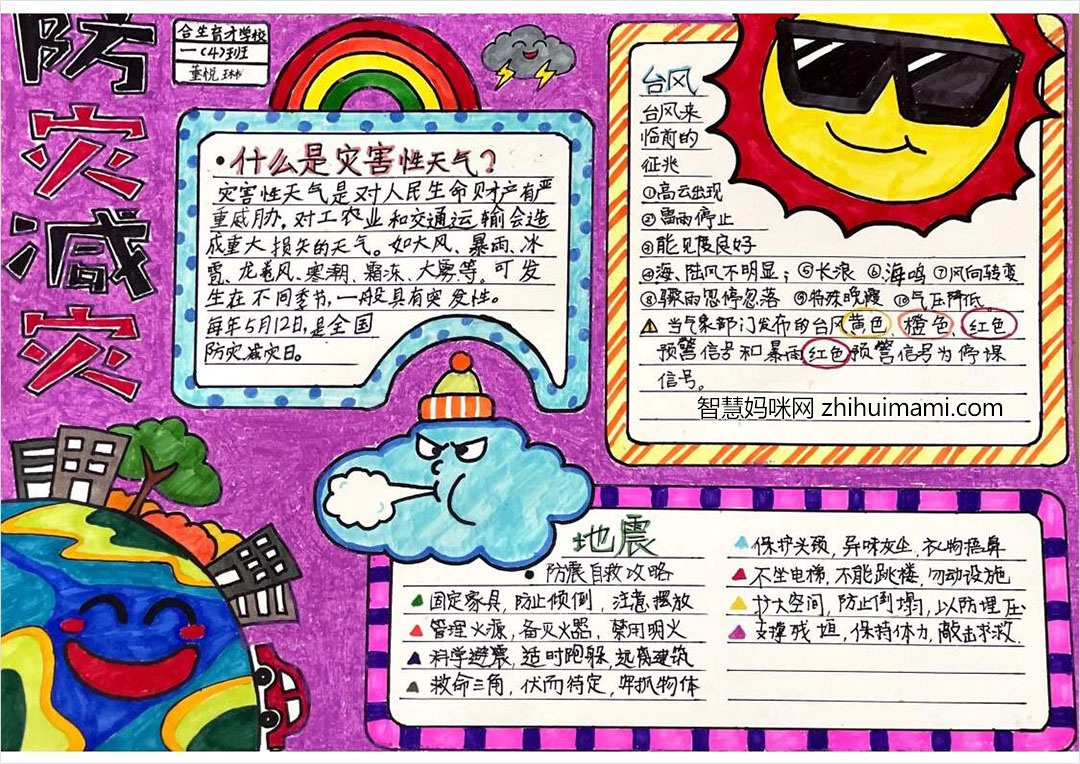 防灾减灾
合生育才学校
一(4)班
董悦琳
•什么是灾害性天气？
灾害性天气是对人民生命财产有严
重威胁，对工农业和交通运输会造
成重大损失的天气。如大风、暴雨、冰
雹、龙卷风、寒潮、霜冻、大雾等。可发
生在不同季节，一般具有突发性。
每年5月12日，是全国
防灾减灾日。
台风
台风来
临前的
征兆
①高云出现
②雷雨停止
③能见度良好
④海、陆风不明显；⑤长浪 ⑥海鸣 ⑦风向转变
⑧骤雨忽停忽落 ⑨特殊晚霞 ⑩气压降低
⚠当气象部门发布的台风黄色、橙色、红色
预警信号和暴雨红色预警信号为停课
信号。
智慧妈咪网 zhihuimami.com
地震
•防震自救攻略
固定家具，防止倾倒，注意摆放
管理火源，备灭火器，禁用明火
科学避震，适时跑躲，远离建筑
救命三角，伏而待定，牢抓物体
保护头颈，异味灰尘，衣物捂鼻
不坐电梯，不能跳楼，勿动设施
扩大空间，防止倒塌，以防埋压
支撑残垣，保持体力，敲击求救.